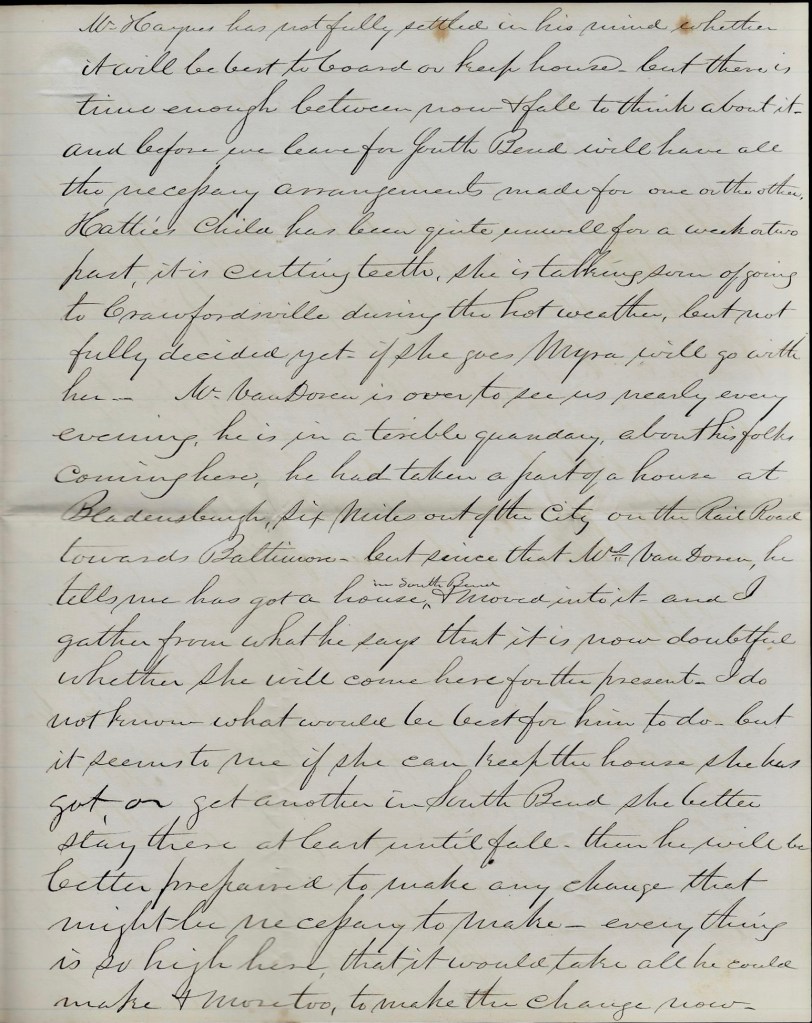 Mr Haynes has not fully settled in his mind whether
it will be best to board or keep house - but there is
time enough between now & fall to think about it -
and before we leave for South Bend will have all
the necessary arrangements made for one or the other.
Hatties Child has been quite unwell for a week or two
past, it is cutting teeth. she is talking som of going
to Crawfordsville during the hot weather, but not
fully decided yet - if she goes Myra will go with
her - Mr VanDoren is over to see us nearly every
evening, he is in a terible quandary, about his folks
coming here, he had taken a part of a house at
Bladensburgh, six Miles out of the City on the Rail Road
towards Baltimore - but since that Mrs VanDoren, he
tells me has got a house, in South Bend & moved into it - and I
gather from what he says that it is now doubtful
whether she will come here for the present - I do
not know what would be best for him to do - but
it seems to me if she can keep the house she has
got, or get another in South Bend she better
stay there at least until fall - then he will be
better prepaired to make any change that
might be necessary to make - every thing
is so high here, that it would take all he could
make & more too, to make the change now -